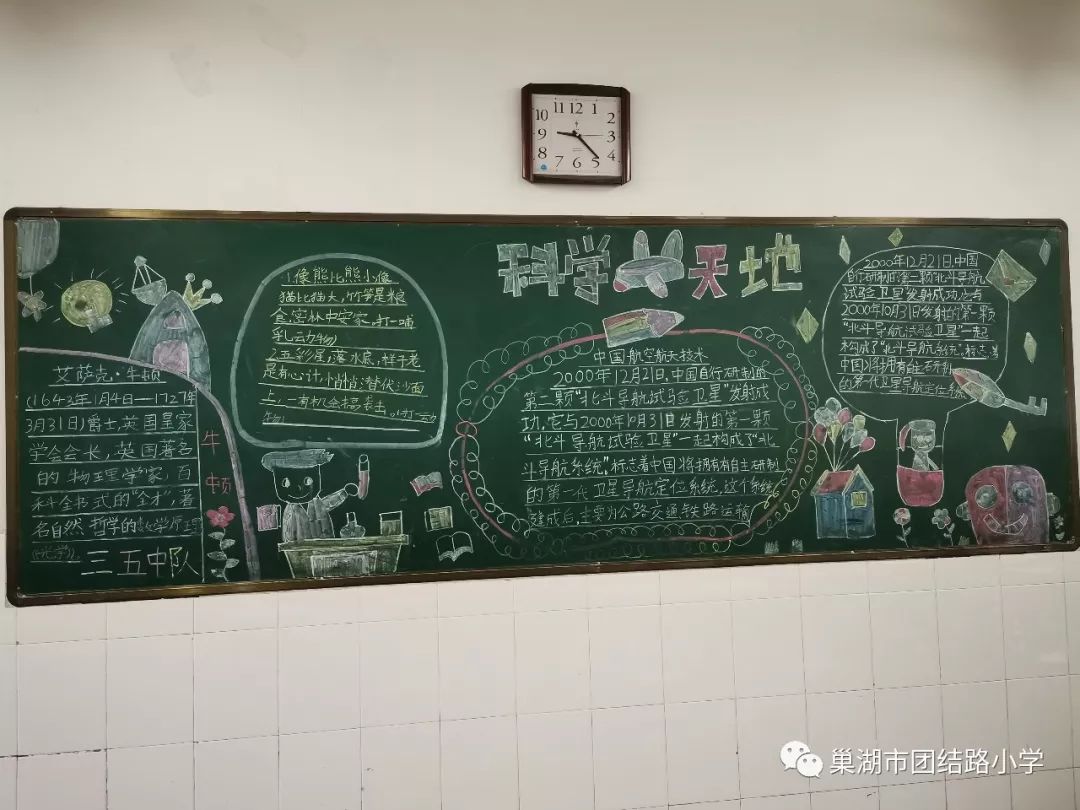 科学天地
艾萨克·牛顿
(1643年1月4日—1727年
3月31日)爵士,英国皇家
学会会长,英国著名
的物理学家,百
科全书式的“全才”,著
名自然哲学的数学原理
光学
三五中队
牛顿
像熊比熊小像
猫比猫大,竹笋是粮
食,密林中安家。打一哺
乳动物)
2.五彩星,落水底,样子老
是有心计,悄悄潜伏沙面
上,一有机会搞袭击
中国航空航天技术
2000年12月21日,中国自行研制的
第二颗“北斗导航试验卫星”发射成
功,它与2000年10月31日发射的第一颗
“北斗导航试验卫星”一起构成了“北
斗导航系统”,标志着中国将拥有有自主研制
的第一代卫星导航定位系统,这个系统
建成后,主要为公路交通铁路运输
2000年12月21日,中国
自行研制的第二颗“北斗导航
试验卫星”发射成功,它与
2000年10月31日发射的第一颗
“北斗导航试验卫星”一起
构成了“北斗导航系统”,标志着
中国将拥有自主研制
的第一代卫星导航定位系统
10 11 12 1 2 3 4 5 6 7 8 9
巢湖市团结路小学